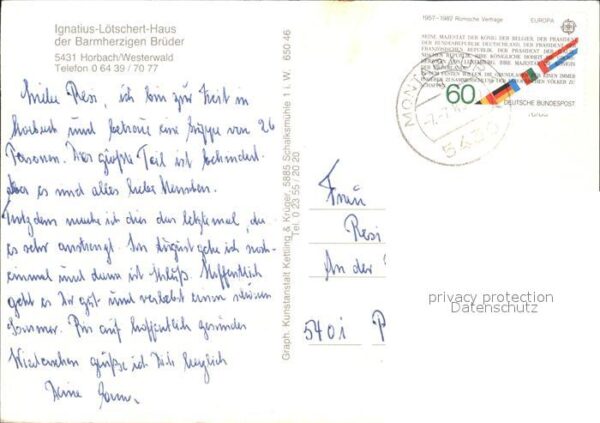 Ignatius-Lötschert-Haus
der Barmherzigen Brüder
5431 Horbach/Westerwald
Telefon 0 64 39 / 70 77
Liebe Resi, ich bin zur Zeit in
Horbach und betreue eine Gruppe von 26
Personen. Der größte Teil ist behindert.
Aber es sind alles liebe Menschen.
Trotzdem mache ich dies das letztemal, da
es sehr anstrengt. Im August gehe ich noch-
einmal und dann ist Schluß. Hoffentlich
geht es Dir gut und verlebst einen schönen
Sommer. Bis auf hoffentlich gesundes
Wiedersehen grüße ich Dich herzlich
Deine
Graph. Kunstanstalt Kettling & Krüger, 5885 Schalksmühle 1 i. W. 650 46
Tel. 0 23 55 / 20 20
1957-1982 Römische Verträge EUROPA CEPT
SEINE MAJESTÄT DER KÖNIG DER BELGIER, DER PRÄSIDENT
DER BUNDESREPUBLIK DEUTSCHLAND, DER PRÄSIDENT DER
FRANZÖSISCHEN REPUBLIK, DER PRÄSIDENT DER
60
DEUTSCHE BUNDESPOST
MONT
5430
Frau
Resi
An der
5401
privacy protection
Datenschutz